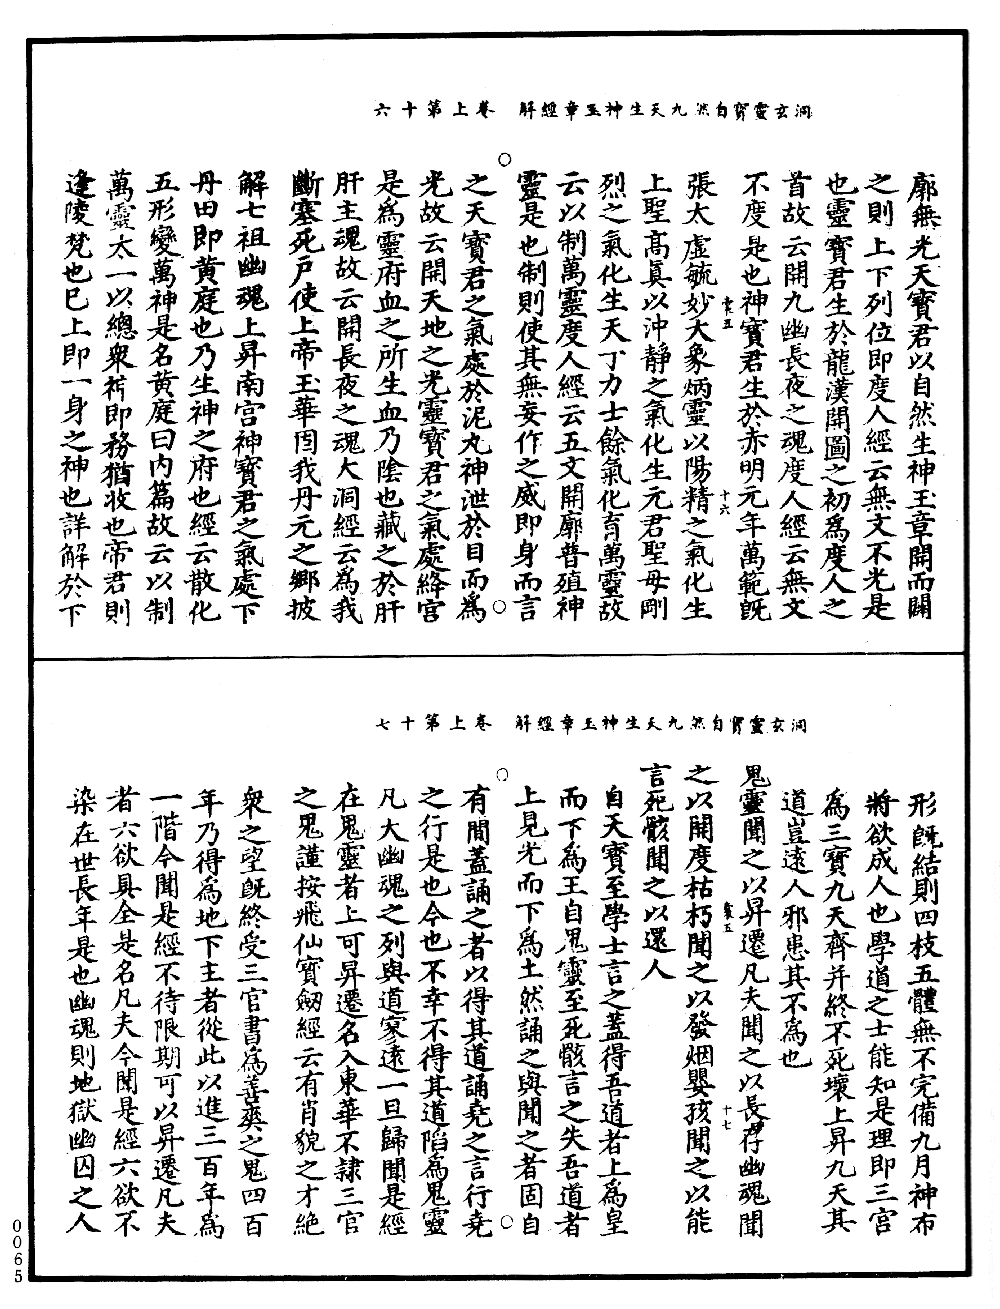 洞玄靈寳自然九天生神玉章經解　卷上第十六
廓無光天寳君以自然生神玉章開而闢
之則上下列位即度人經云無文不光是
也靈寳君生於龍漢開圖之初為度人之
首故云開九幽長夜之魂度人經云無文
不度是也神寳君生於赤明元年萬範旣
裳五　十六
張太虛毓妙大象炳靈以陽精之氣化生
上聖高真以沖靜之氣化生元君聖母剛
烈之氣化生天丁力士餘氣化育萬靈故
云以制萬靈度人經云五文開廓普殖神
靈是也制則使其無妄作之威即身而言
之天寳君之氣處於泥丸神泄於目而為
光故云開天地之光靈寳君之氣處絳宮
是為靈府血之所生血乃陰也藏之於肝
肝主魂故云開長夜之魂大洞經云為我
斷塞死戶使上帝玉華固我丹元之鄉披
解七祖幽魂上昇南宮神寳君之氣處下
丹田即黄庭也乃生神之府也經云散化
五形變萬神是名黄庭曰内篇故云以制
萬靈太一以總衆神即務猶收也帝君則
逢陵梵也巳上即一身之神也詳解於下
洞玄靈寳自然九天生神玉章經解　卷上第十七
形旣結則四枝五體無不完備九月神布
將欲成人也學道之士能知是理即三宮
為三寳九天齊并終不死壞上昇九天其
道豈遠人邪患其不為也
鬼靈聞之以昇遷凡夫聞之以長存幽魂聞
裳五　十七
之以開度枯朽聞之以發烟嬰孩聞之以能
言死骸聞之以還人
自天寳至學士言之蓋得吾道者上為皇
而下為王自鬼靈至死骸言之失吾道者
上見光而下為土然誦之與聞之者固自
有間蓋誦之者以得其道誦堯之言行堯
之行是也今也不幸不得其道陷為鬼靈
凡大幽魂之列與道寥遠一旦歸聞是經
在鬼靈者上可昇遷名入東華不隷三官
之鬼謹按飛仙寳劒經云有肖貌之才絶
衆之望旣終受三官書為善爽之鬼四百
年乃得為地下主者從此以進三百年為
一階今聞是經不待限期可以昇遷凡夫
者六欲具全是名凡夫今聞是經六欲不
染在世長年是也幽魂則地獄幽囚之人
0065